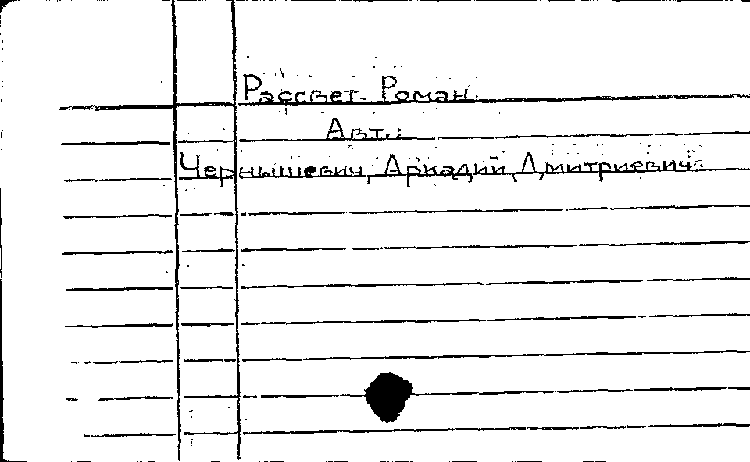 Рассвет. Роман.
Авт.:
Чернышевич, Аркадий Дмитриевич